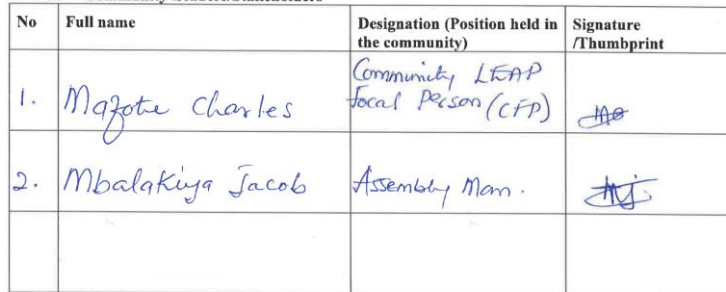 No Full name Designation (Position held in the community) Signature /Thumbprint
1. Charles Community LEAP
focal Person (CFP)
2. Mbalakiya Jacob Assembly Man.